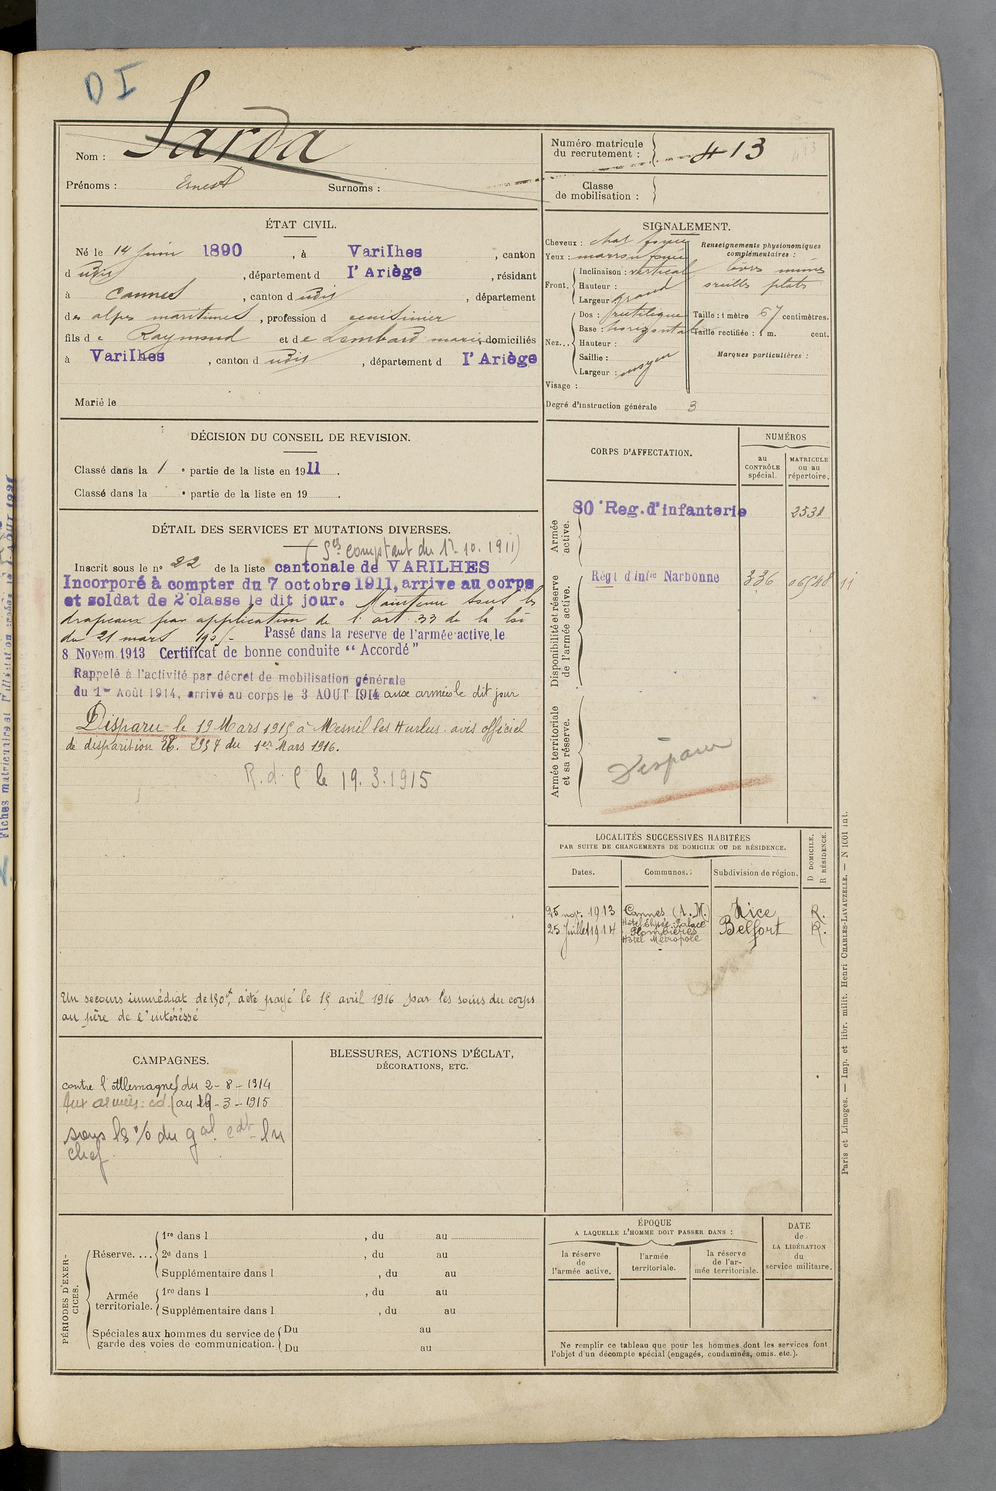 DI
Nom : Sarda
Prénoms : Ernest Surnoms :
Numéro matricule du recrutement : 413
Classe de mobilisation :
ÉTAT CIVIL.
Né le 14 Juin 1890 , à Varilhes , canton
d udis , département d l'Ariège , résidant
à Cannes , canton d udis , département
des alpes maritimes , profession de cuisinier
fils de Raymond et de Lombard marie, domiciliés
à Varilhes , canton d udis , département d l'Ariège
Marié le
SIGNALEMENT.
Cheveux : chat foncé
Yeux : marron foncé
Front, Inclinaison : vertical
Hauteur :
Largeur : grand
Nez... Dos : rectiligne
Base : horizontale
Hauteur :
Saillie :
Largeur : moyen
Visage :
Degré d'instruction générale 3
Renseignements physionomiques complémentaires :
lèvres minces
oreilles plats
Taille : 1 mètre 67 centimètres.
Taille rectifiée : 1 m. cent.
Marques particulières :
DÉCISION DU CONSEIL DE REVISION.
Classé dans la 1 e partie de la liste en 1911 .
Classé dans la e partie de la liste en 19 .
DÉTAIL DES SERVICES ET MUTATIONS DIVERSES.
(Sce comptant du 1er.10.1911)
Inscrit sous le no 22 de la liste cantonale de VARILHES
Incorporé à compter du 7 octobre 1911, arrive au corps
et soldat de 2e classe le dit jour. Maintenu sous les
drapeaux par application de l'art. 33 de la loi
du 21 mars 1905.- Passé dans la reserve de l'armée active, le
8 Novem. 1913 Certificat de bonne conduite "Accordé"
Rappelé à l'activité par décret de mobilisation générale
du 1er Août 1914, arrivé au corps le 3 AOUT 1914 aux armées le dit jour
Disparu le 19 Mars 1915 à Mesnil les Hurlus avis officiel
de disparition 2957 du 1er Mars 1916.
R.d.C le 19.3.1915
Un secours immédiat de 150f a été payé le 18 avril 1916 par les soins du corps
au père de l'intéressé
CORPS D'AFFECTATION.
NUMÉROS
au CONTRÔLE spécial.
MATRICULE ou au répertoire.
Armée active.
80e Reg. d'infanterie 2538
Disponibilité et réserve de l'armée active.
Régt d'Infie Narbonne 336 06548 11
Armée territoriale et sa réserve.
Disparu
LOCALITÉS SUCCESSIVES HABITÉES
PAR SUITE DE CHANGEMENTS DE DOMICILE OU DE RÉSIDENCE.
Dates. Communes. Subdivision de région. D DOMICILE. R RÉSIDENCE.
25 nov. 1913 Cannes (A.M.) Nice R.
Hôtel Elysée-Palace
25 Juillet 1914 Plombières Belfort R.
Hôtel Métropole
CAMPAGNES.
contre l'Allemagne du 2-8-1914
Aux armées cd au 19-3-1915
sous les % du gal cdt en
chef
BLESSURES, ACTIONS D'ÉCLAT,
DÉCORATIONS, ETC.
PÉRIODES D'EXERCICES.
Réserve.... 1re dans l , du au
2e dans l , du au
Supplémentaire dans l , du au
Armée territoriale. 1re dans l , du au
Supplémentaire dans l , du au
Spéciales aux hommes du service de garde des voies de communication. Du au
Du au
ÉPOQUE
A LAQUELLE L'HOMME DOIT PASSER DANS :
la réserve de l'armée active.
l'armée territoriale.
la réserve de l'armée territoriale.
DATE de LA LIBÉRATION du service militaire.
Ne remplir ce tableau que pour les hommes dont les services font
l'objet d'un décompte spécial (engagés, condamnés, omis, etc.).
Paris et Limoges. — Imp. et libr. milit. Henri CHARLES-LAVAUZELLE. — N 1001 int.